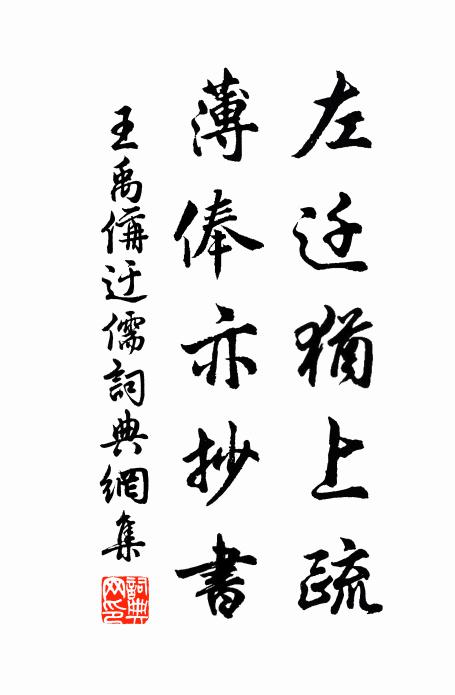 左迁猶上疏
薄俸亦抄書
王禹偁迂儒詞典網集
詞典網印